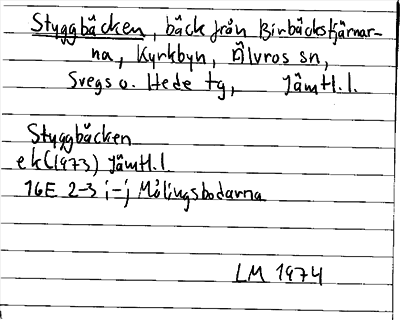 Styggbäcken, bäck från Birbäckstjärnar-
na, Kyrkbyn, Älvros sn,
Svegs o. Hede tg, Jämtl.l.
Styggbäcken
ek(1973) Jämtl.l.
16E 2-3 i-j Målingsbodarna
LM 1974